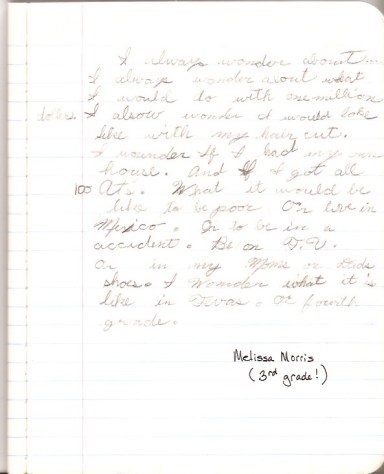 I always wonder about...
I always wonder about what
I would do with one million
dollers. I alsow wonder I would look
like with my hair cut.
I wounder If I had my own
house. And If I got all
100 At's. What it would be
like to be poor Or live in
Mexico. Or to be in a
accident. Be on T.V.
Or in my Moms or Dads
shoes. I Wonder what it is
like in Texas. Or fourth
grade.
Melissa Morris
(3rd grade!)